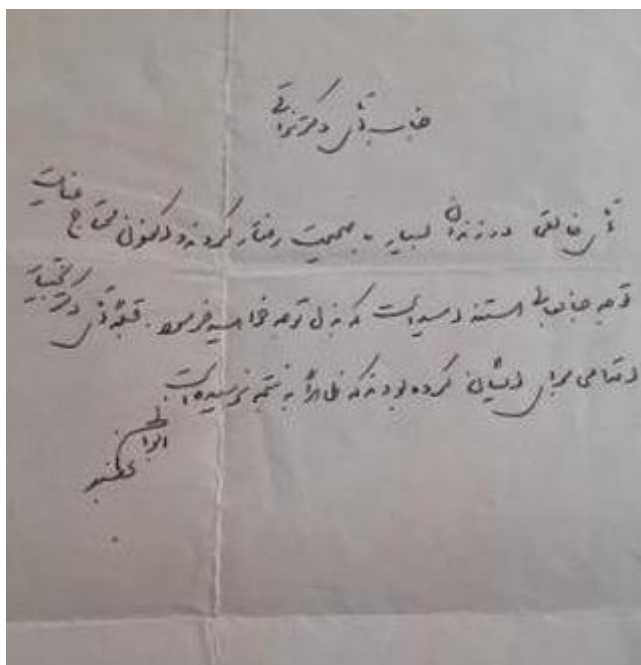 جناب آقای دکتر نراقی
آقای خالقی در زندان بسیار با صمیمیت رفتار کردند و اکنون محتاج عنایت
توجه جنابعالی هستند امید است که بذل توجه خواهید فرمود. قبلا آقای دکتر بختیار
اقدامی برای ایشان کرده بودند که ظاهراً به نتیجه نرسیده است